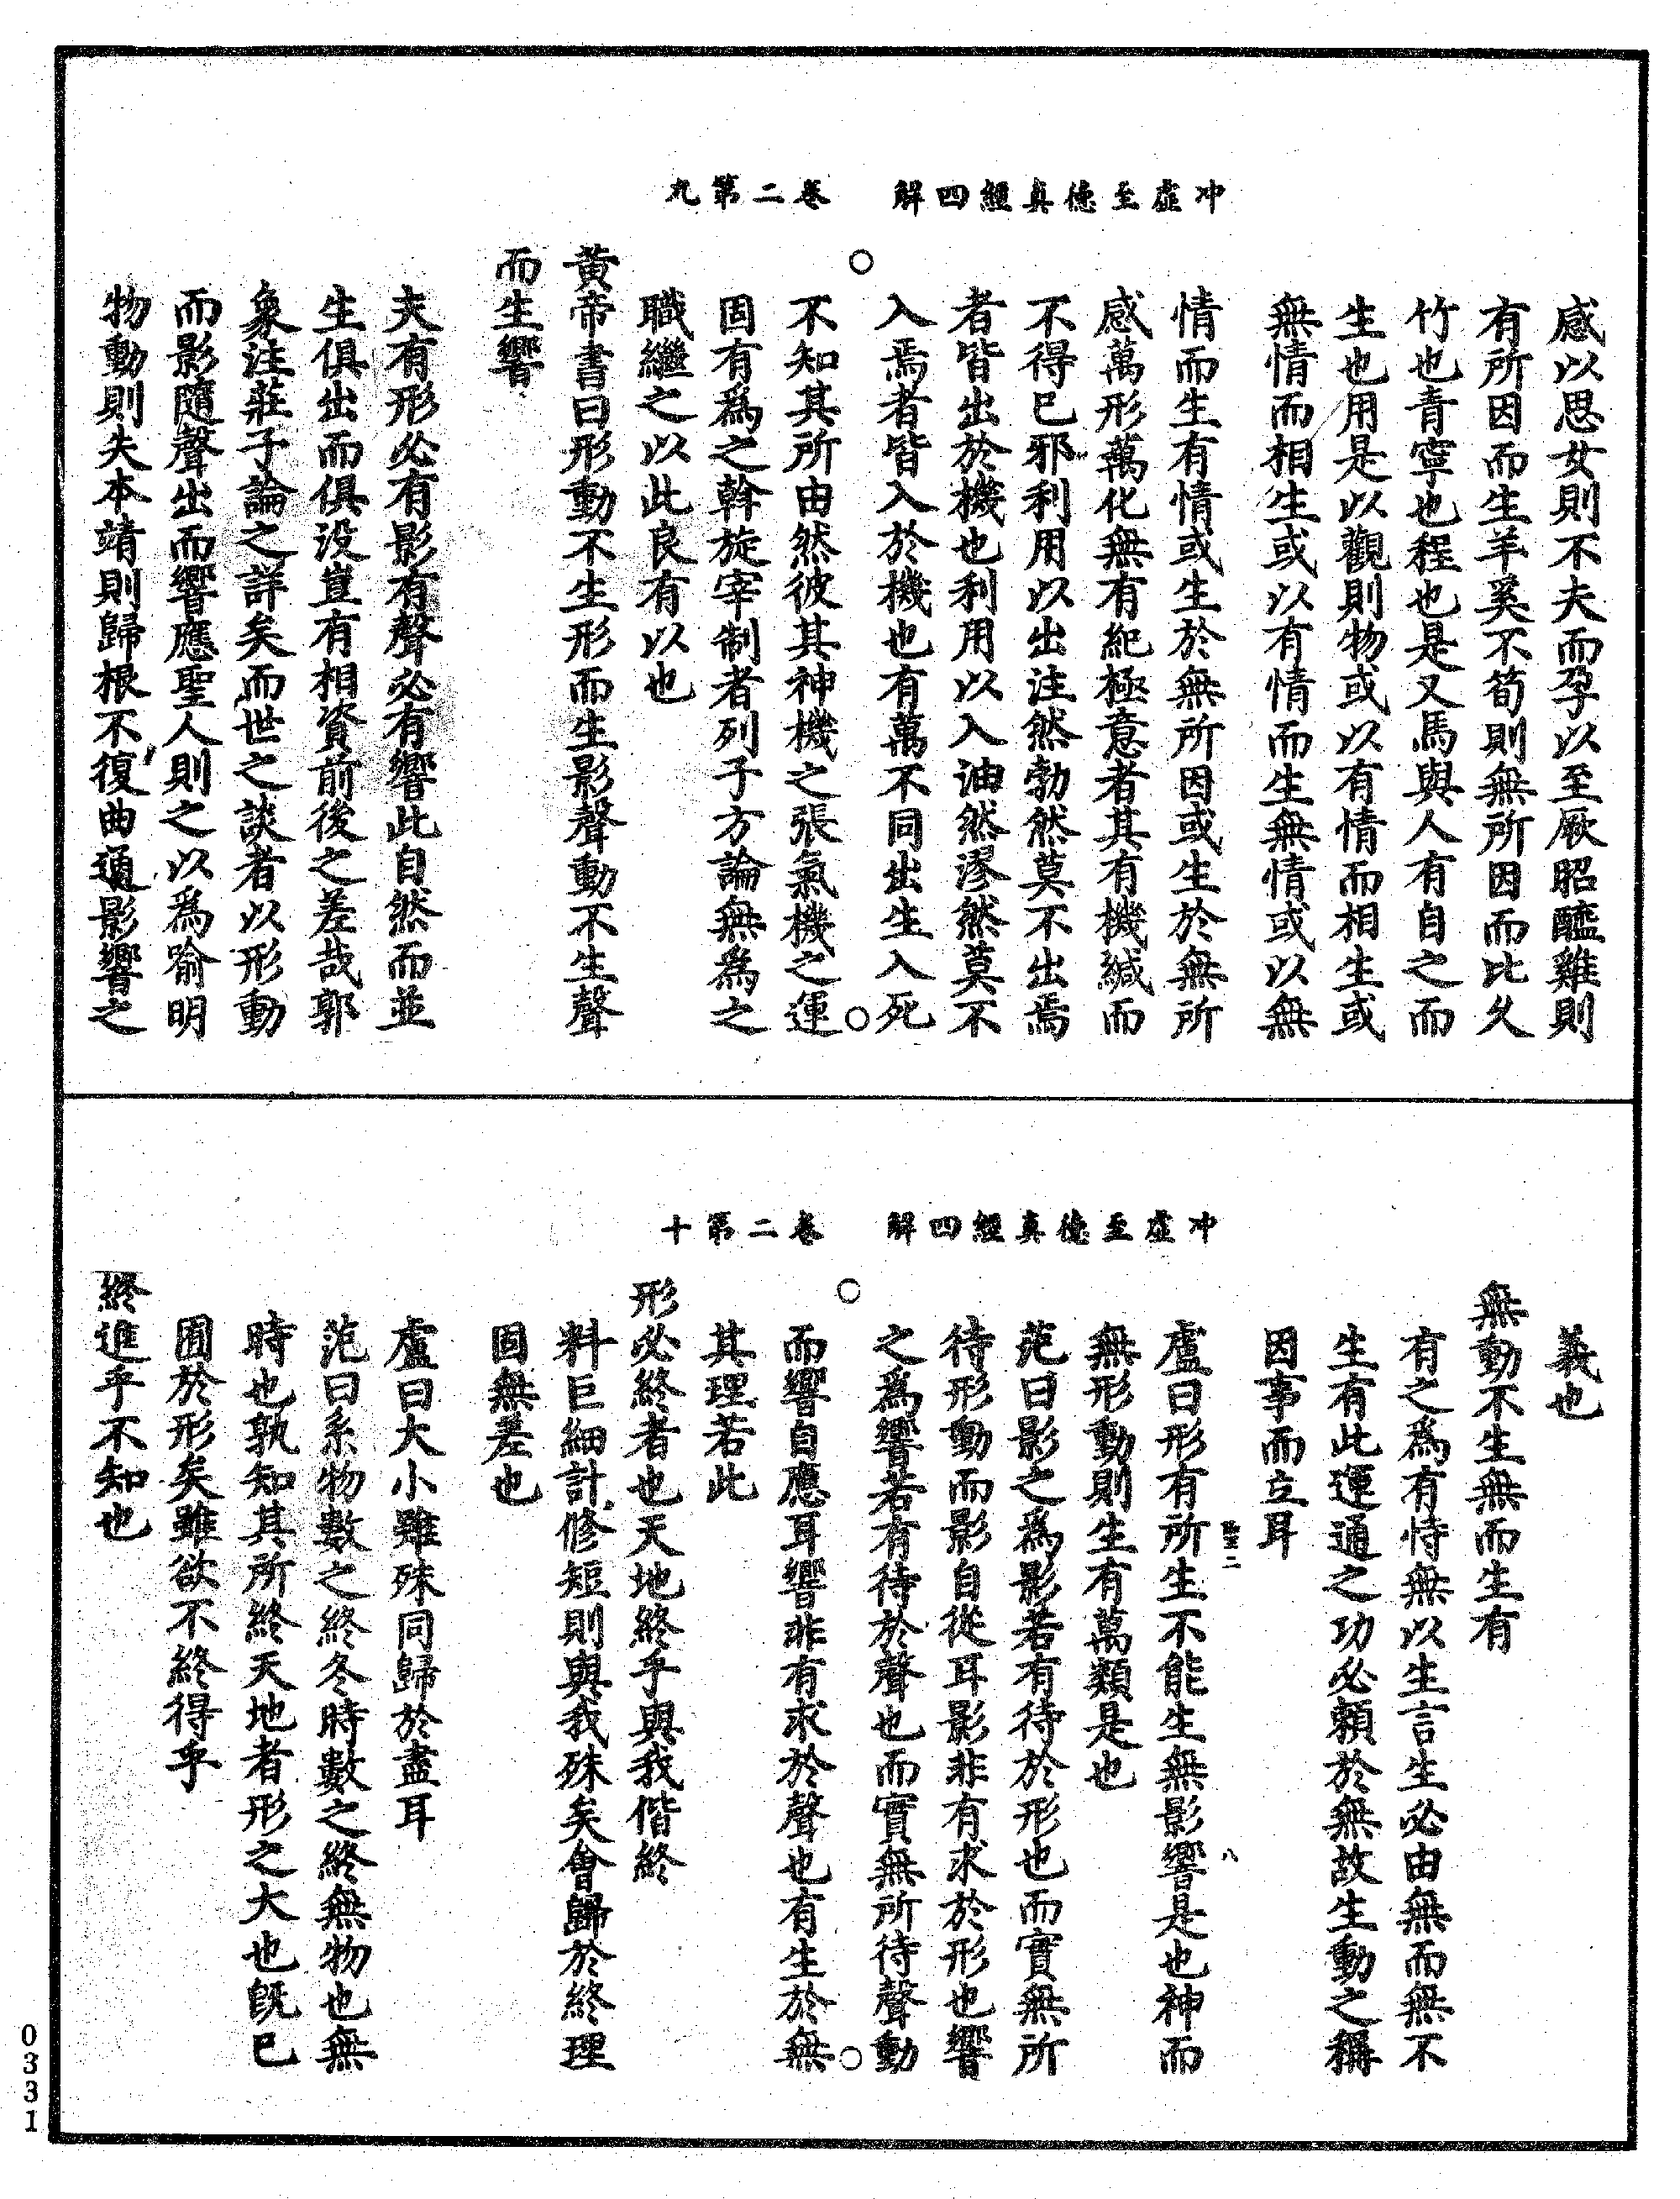 冲虛至德真經四解　卷二第九
感以思女則不夫而孕以至厥昭醯雞則
有所因而生羊奚不筍則無所因而比久
竹也青寧也程也是又馬與人有自之而
生也用是以觀則物或以有情而相生或
無情而相生或以有情而生無情或以無
情而生有情或生於無所因或生於無所
感萬形萬化無有紀極意者其有機緘而
不得已邪利用以出注然勃然莫不出焉
者皆出於機也利用以入油然漻然莫不
入焉者皆入於機也有萬不同出生入死
不知其所由然彼其神機之張氣機之運
固有為之斡旋宰制者列子方論無為之
職繼之以此良有以也
黃帝書曰形動不生形而生影聲動不生聲
而生響
夫有形必有影有聲必有響此自然而並
生俱出而俱没豈有相資前後之差哉郭
象注莊子論之詳矣而世之談者以形動
而影隨聲出而響應聖人則之以為喻明
物動則失本靖則歸根不復曲通影響之
冲虛至德真經四解　卷二第十
義也
無動不生無而生有
有之為有恃無以生言生必由無而無不
生有此運通之功必賴於無故生動之稱
因事而立耳
盧曰形有所生不能生無影響是也神而
無形動則生有萬類是也
范曰影之為影若有待於形也而實無所
待形動而影自從耳影非有求於形也響
之為響若有待於聲也而實無所待聲動
而響自應耳響非有求於聲也有生於無
其理若此
形必終者也天地終乎與我偕終
料巨細計修短則與我殊矣會歸於終理
固無差也
盧曰大小雖殊同歸於盡耳
范曰系物數之終冬時數之終無物也無
時也孰知其所終天地者形之大也旣已
囿於形矣雖欲不終得乎
終進乎不知也
0331